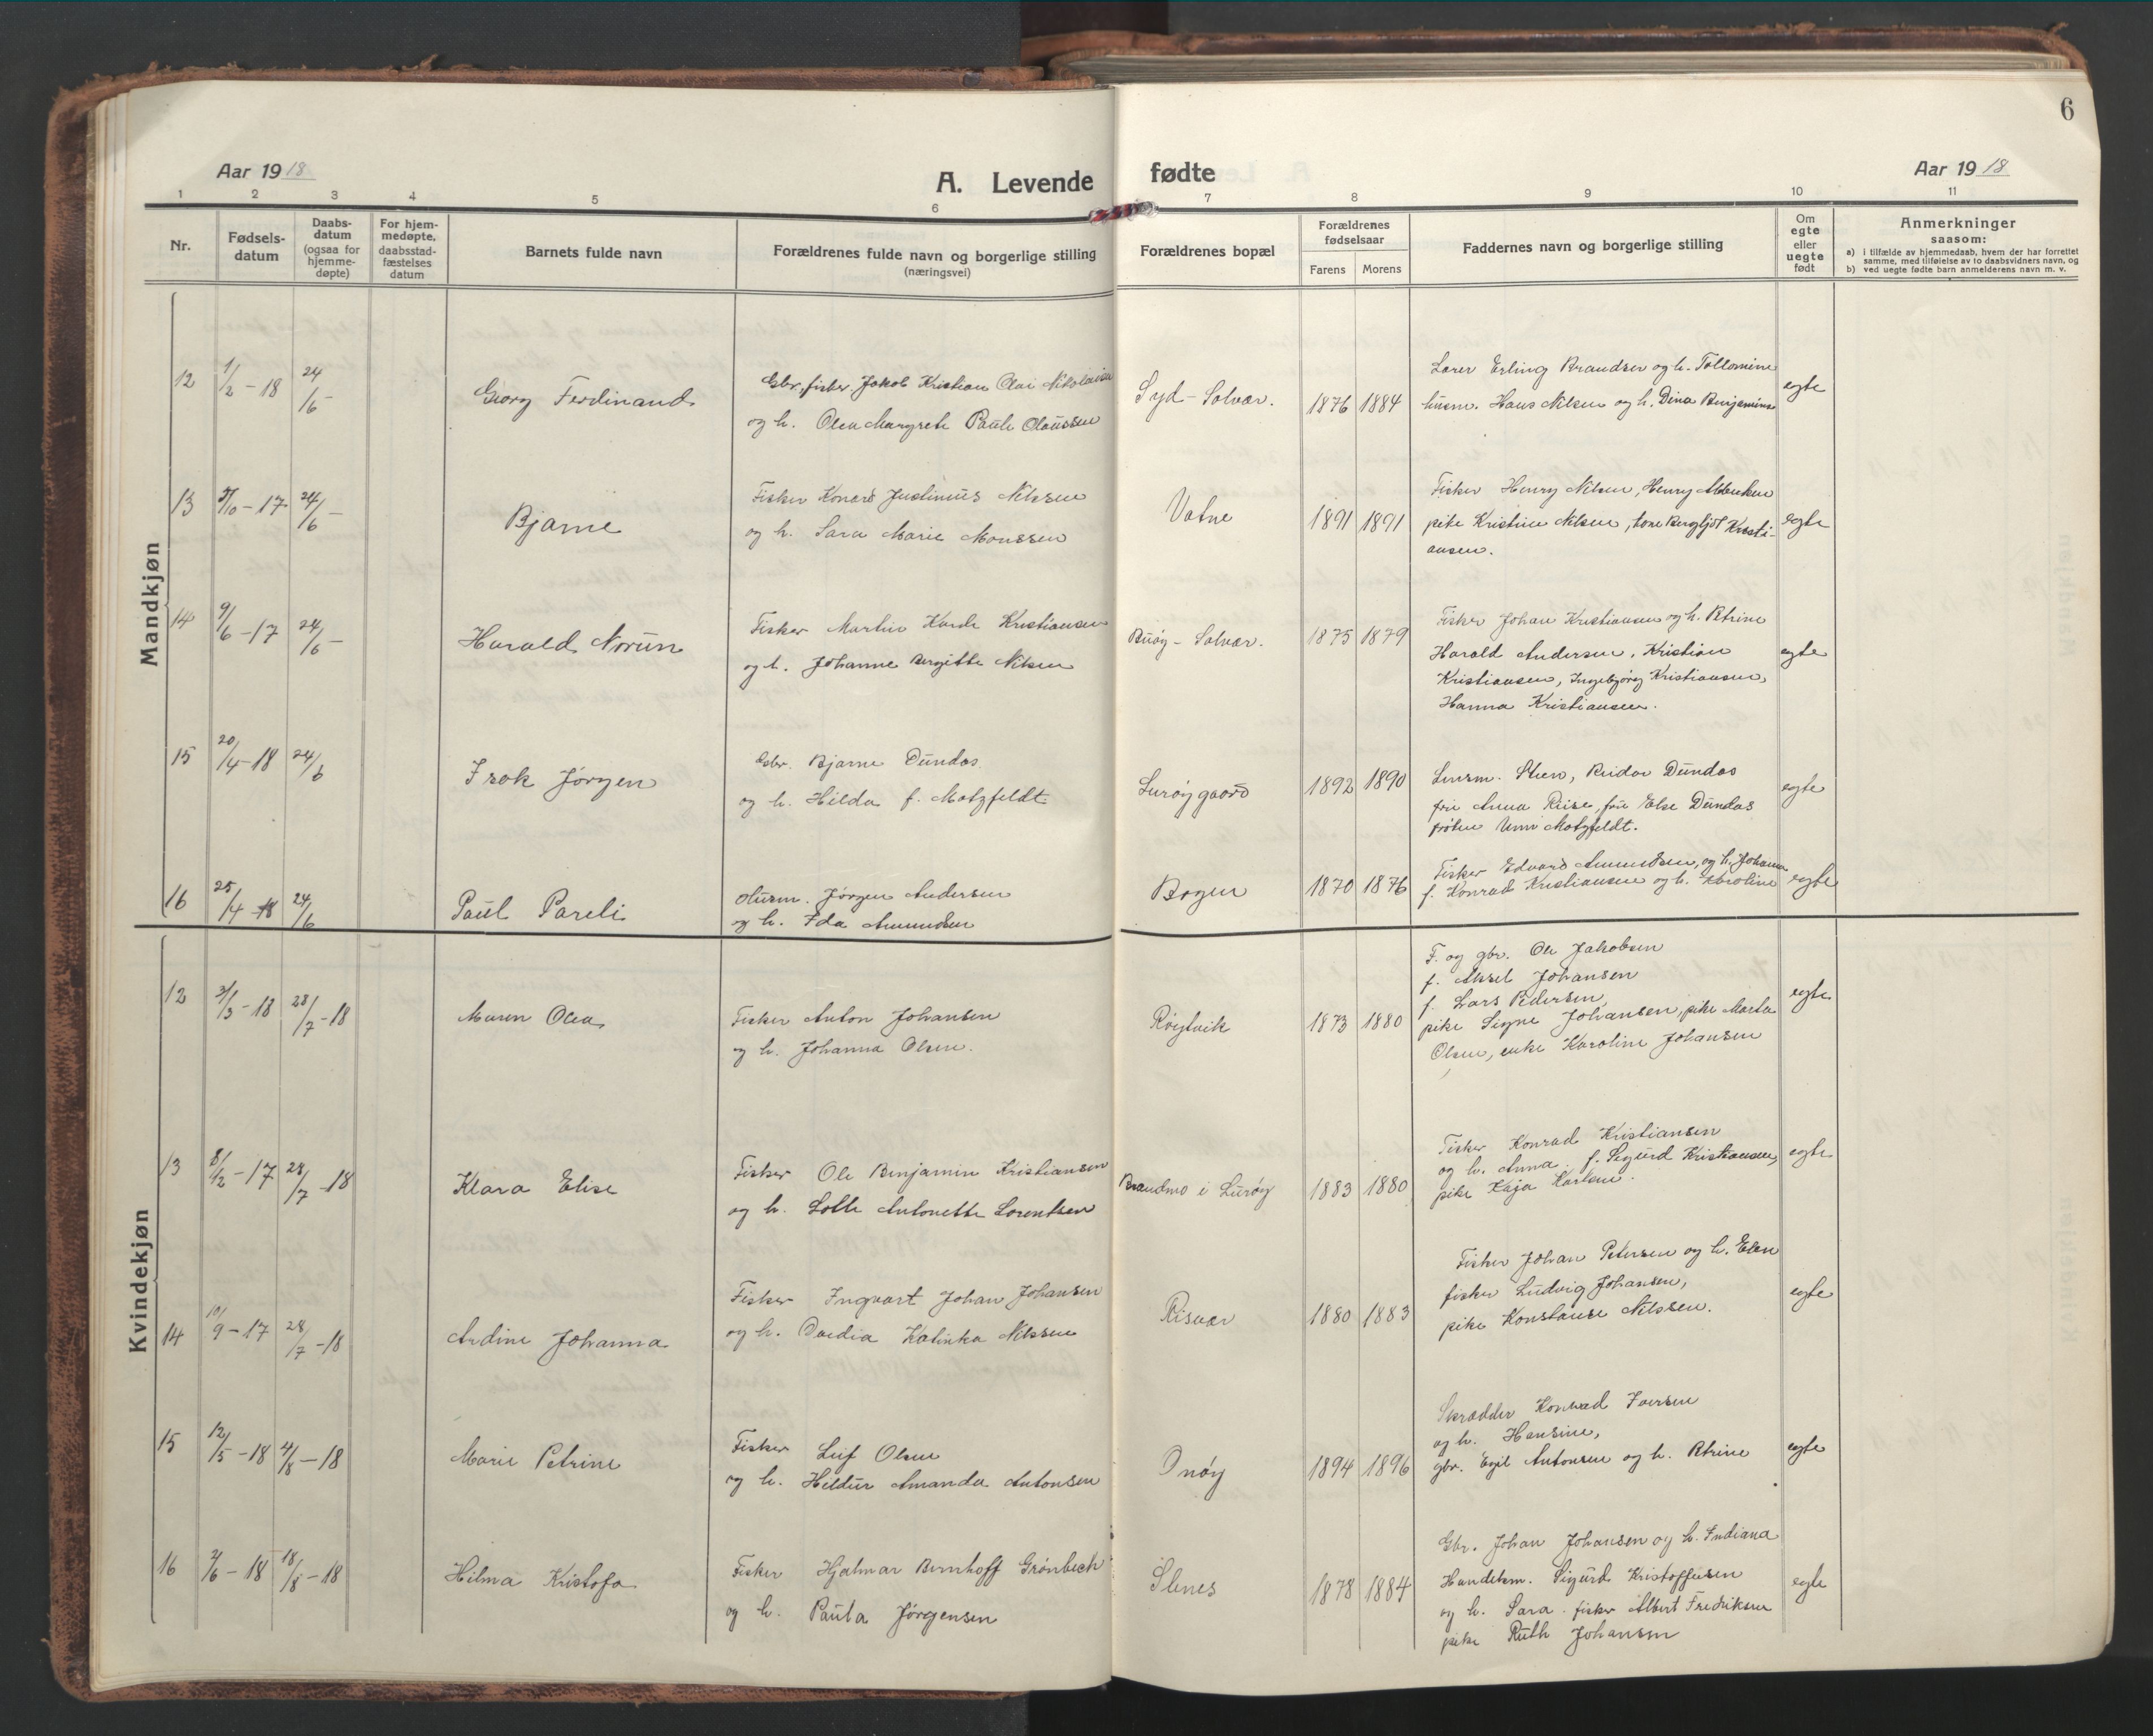 6
Aar 1918
A. Levende fødte
Aar 1918
1 2 3 4 5 6 7 8 9 10 11
Nr.
Fødsels-
datum
Daabs-
datum
(ogsaa for
hjemme-
døpte)
For hjem-
medøpte,
daabsstad-
fæstelses
datum
Barnets fulde navn
Forældrenes fulde navn og borgerlige stilling
(næringsvei)
Forældrenes bopæl
Forældrenes
fødselsaar
Farens Morens
Faddernes navn og borgerlige stilling
Om
egte
eller
uegte
født
Anmerkninger
saasom:
a) i tilfælde av hjemmedaab, hvem der har forrettet
samme, med tilføielse av to daabsvidners navn, og
b) ved uegte fødte barn anmelderens navn m. v.
Mandkjøn
12 1/2-18 24/6- Georg Ferdinand
Gbr, fisker Jakob Kristian Olai Nikolaisen
og h. Olea Margrete Paule Olaussen
Syd-Solvær. 1876 1884
Lærer Erling Brandser og h. Tollomine
husm. Hans Nilsen og h. Dina Benjamins
egte
13 /10-17 24/6- Bjarne
Fisker Konard Justinius Nilssen
og h. Sara Marie Monssen
Vatne 1891 1891
Fisker Henry Nilsen, Henry
pike Kristine Nilsen, Bergljot Kristi-
ansen.
egte
14 9/6-17 24/6- Harald Norun
Fisker Martin Kristiansen
og h. Johanne Bergitte Nilsen
Buøy-Solvær. 1875 1879
Fisker Johan Kristiansen og h. Petrine
Harald Andersen, Kristian
Kristiansen, Ingebjørg Kristiansen,
Hanna Kristiansen.
egte
15 20/4-18 24/6 Isak Jørgen
Gbr. Bjarne Dundas
og h. Hilda f. Motzfeldt
Lurøygaard 1892 1890
Lensm. Steen, Reidar Dundas
fru Anna Riise, fru Else Dundas
frøken Unni Motzfeldt.
egte
16 25/4-18 24/6 Paul Pareli
Husm. Jørgen Andersen
og h. Ida Amundsen
Bogen 1870 1876
Fisker Edvard Amundsen, og h. Johanna
f. Konrad Kristiansen og h. Karoline
egte
Kvindekjøn
12 /3-18 28/7-18 Maren Olea
Fisker Anton Johansen
og h. Johanna Olsen.
Røytvik 1873 1880
F. og gbr. Ole Jakobsen
f. Aksel Johansen
f. Lars Pedersen,
pike Signe Johansen, pike Marta
Olsen, enke Karoline Johansen
egte
13 8/12-17 28/7-18 Klara Elise
Fisker Ole Benjamin Kristiansen
og h. Lolle Antonette Lorentsen
Brandmo i Lurøy 1883 1880
Fisker Konrad Kristiansen
og h. Anna. f. Sigurd Kristiansen,
pike Kaja Karlsen.
egte
14 10/9-17 28/7-18 Andine Johanna
Fisker Ingvart Johan Johansen
og h. Dordia Katinka Nilssen
Risvær 1880 1883
Fisker Johan Petersen og h. Elen
fisker Ludvig Johansen,
pike Konstanse Nilssen.
egte
15 12/5-18 4/8-18 Marie Petrine
Fisker Leif Olsen
og h. Hildur Amanda Antonsen
Onøy 1894 1896
Skrædder Konrad Iversen
og h. Hansine,
gbr. Egil Antonsen og h. Petrine
egte
16 2/6-18 18/8-18 Hilma Kristofa
Fisker Hjalmar Bernhoff Grønbech
og h. Paula Jørgensen
Stenes 1878 1884
Gbr. Johan Johansen og h. Indiana
Handelsm. Sigurd Kristoffersen
og h. Sara. fisker Albert Fredriksen
pike Ruth Johansen
egte